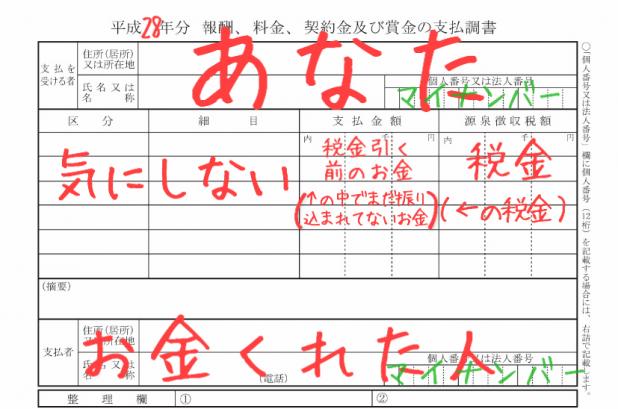 平成28年分 報酬、料金、契約金及び賞金の支払調書
支払を受ける者
住所(居所)又は所在地
あなた
氏名又は名称
個人番号又は法人番号
マイナンバー
区分
細目
支払金額
源泉徴収税額
内 千 円
内 千 円
気にしない
税金引く
前のお金
(↑の中でまだ振り
込まれてないお金)
税金
(←の税金)
(摘要)
支払者
住所(居所)又は所在地
お金くれた人
氏名又は名称
(電話)
個人番号又は法人番号
マイナンバー
整理欄
①
②
○「個人番号又は法人番号」欄に個人番号(12桁)を記載する場合には、右詰で記載します。